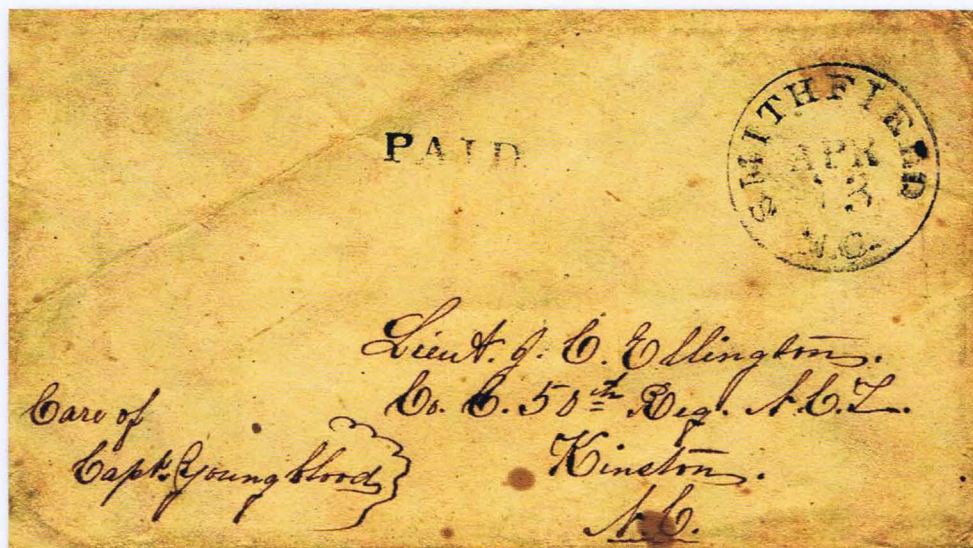 PAID
SMITHFIELD
APR
13
N.C.
Lieut. J. C. Ellington.
Co. C. 50th Reg. N.C.T.
Kinston.
N.C.
Care of
Capt. Youngblood